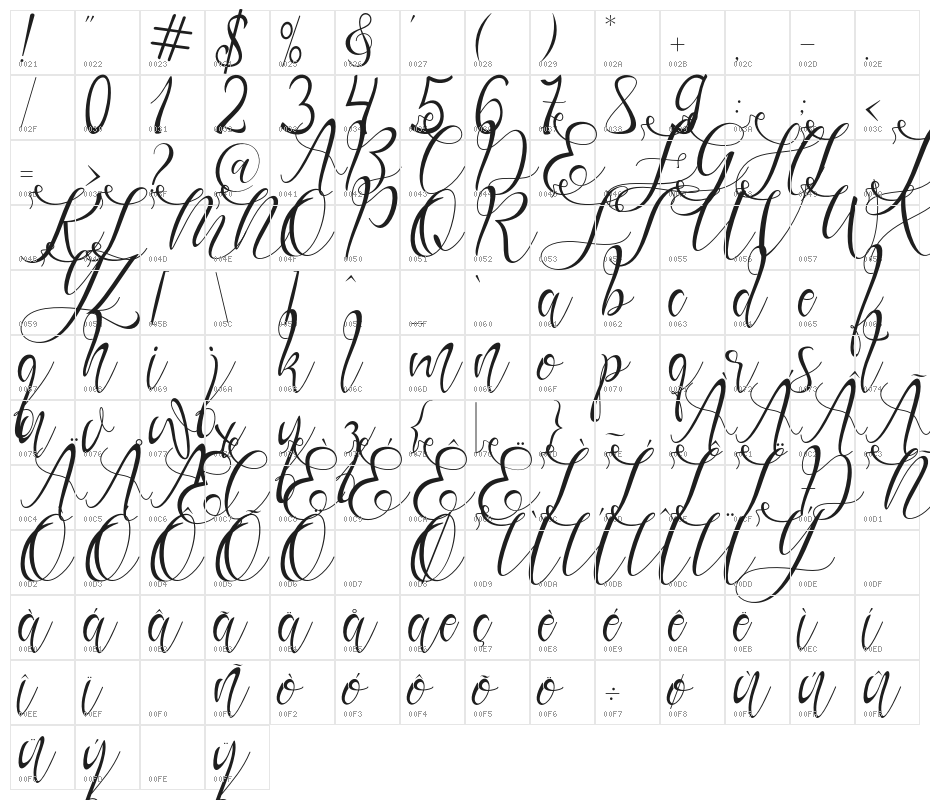 ! " # $ % & ' ( ) * + , - .
0021 0022 0023 0024 0025 0026 0027 0028 0029 002A 002B 002C 002D 002E
/ 0 1 2 3 4 5 6 7 8 9 : ; <
002F 0030 0031 0032 0033 0034 0035 0036 0037 0038 0039 003A 003B 003C
= > ? @ A B C D E F G H I J
003D 003E 003F 0040 0041 0042 0043 0044 0045 0046 0047 0048 0049 004A
K L M N O P Q R S T U V W X
004B 004C 004D 004E 004F 0050 0051 0052 0053 0054 0055 0056 0057 0058
Y Z [ \ ] ^ _ ` a b c d e f
0059 005A 005B 005C 005D 005E 005F 0060 0061 0062 0063 0064 0065 0066
g h i j k l m n o p q r s t
0067 0068 0069 006A 006B 006C 006D 006E 006F 0070 0071 0072 0073 0074
u v w x y z { | } ~ À Á Â Ã
0075 0076 0077 0078 0079 007A 007B 007C 007D 007E 00C0 00C1 00C2 00C3
Ä Å Æ Ç È É Ê Ë Ì Í Î Ï Ð Ñ
00C4 00C5 00C6 00C7 00C8 00C9 00CA 00CB 00CC 00CD 00CE 00CF 00D0 00D1
Ò Ó Ô Õ Ö Ø Ù Ú Û Ü Ý
00D2 00D3 00D4 00D5 00D6 00D7 00D8 00D9 00DA 00DB 00DC 00DD 00DE 00DF
à á â ã ä å æ ç è é ê ë ì í
00E0 00E1 00E2 00E3 00E4 00E5 00E6 00E7 00E8 00E9 00EA 00EB 00EC 00ED
î ï ñ ò ó ô õ ö ÷ ø ù ú û
00EE 00EF 00F0 00F1 00F2 00F3 00F4 00F5 00F6 00F7 00F8 00F9 00FA 00FB
ü ý ÿ
00FC 00FD 00FE 00FF